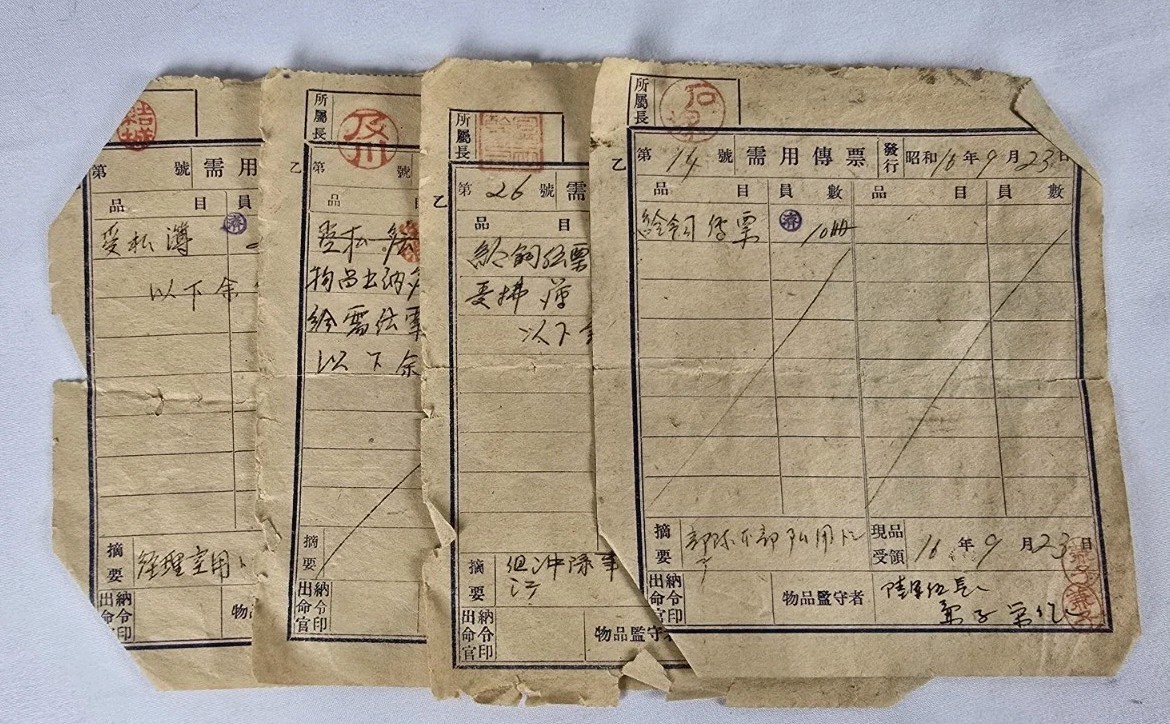 結城
第 號 需用
品 目 員
受払簿 済
以下余
摘要 経理室用
出納命令官印 物
所屬長 及川
乙 第 號
品
受払
物品出納
給需伝票
以下余
摘要
出納命令官印
所屬長
乙 第 26 號 需
品 目
給飼伝票
受拂簿
以下
摘要
出納命令官印 物品監守者
所屬長
乙 第 14 號 需用傳票 發行 昭和 16 年 9 月 23 日
品 目 員 數 品 目 員 數
給飼伝票 済 10冊
摘要 現品受領 16 年 9 月 23 日
出納命令官印 物品監守者 陸軍伍長